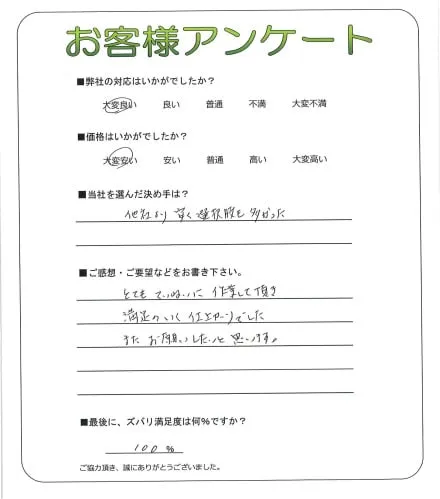 お客様アンケート
■弊社の対応はいかがでしたか?
大変良い 良い 普通 不満 大変不満
■価格はいかがでしたか?
大変安い 安い 普通 高い 大変高い
■当社を選んだ決め手は?
他社より安く選択肢も多かった
■ご感想・ご要望などをお書き下さい。
とてもていねいに作業して頂き
満足のいく仕上がりでした
またお願いしたいと思います。
■最後に、ズバリ満足度は何%ですか?
100%
ご協力頂き、誠にありがとうございました。